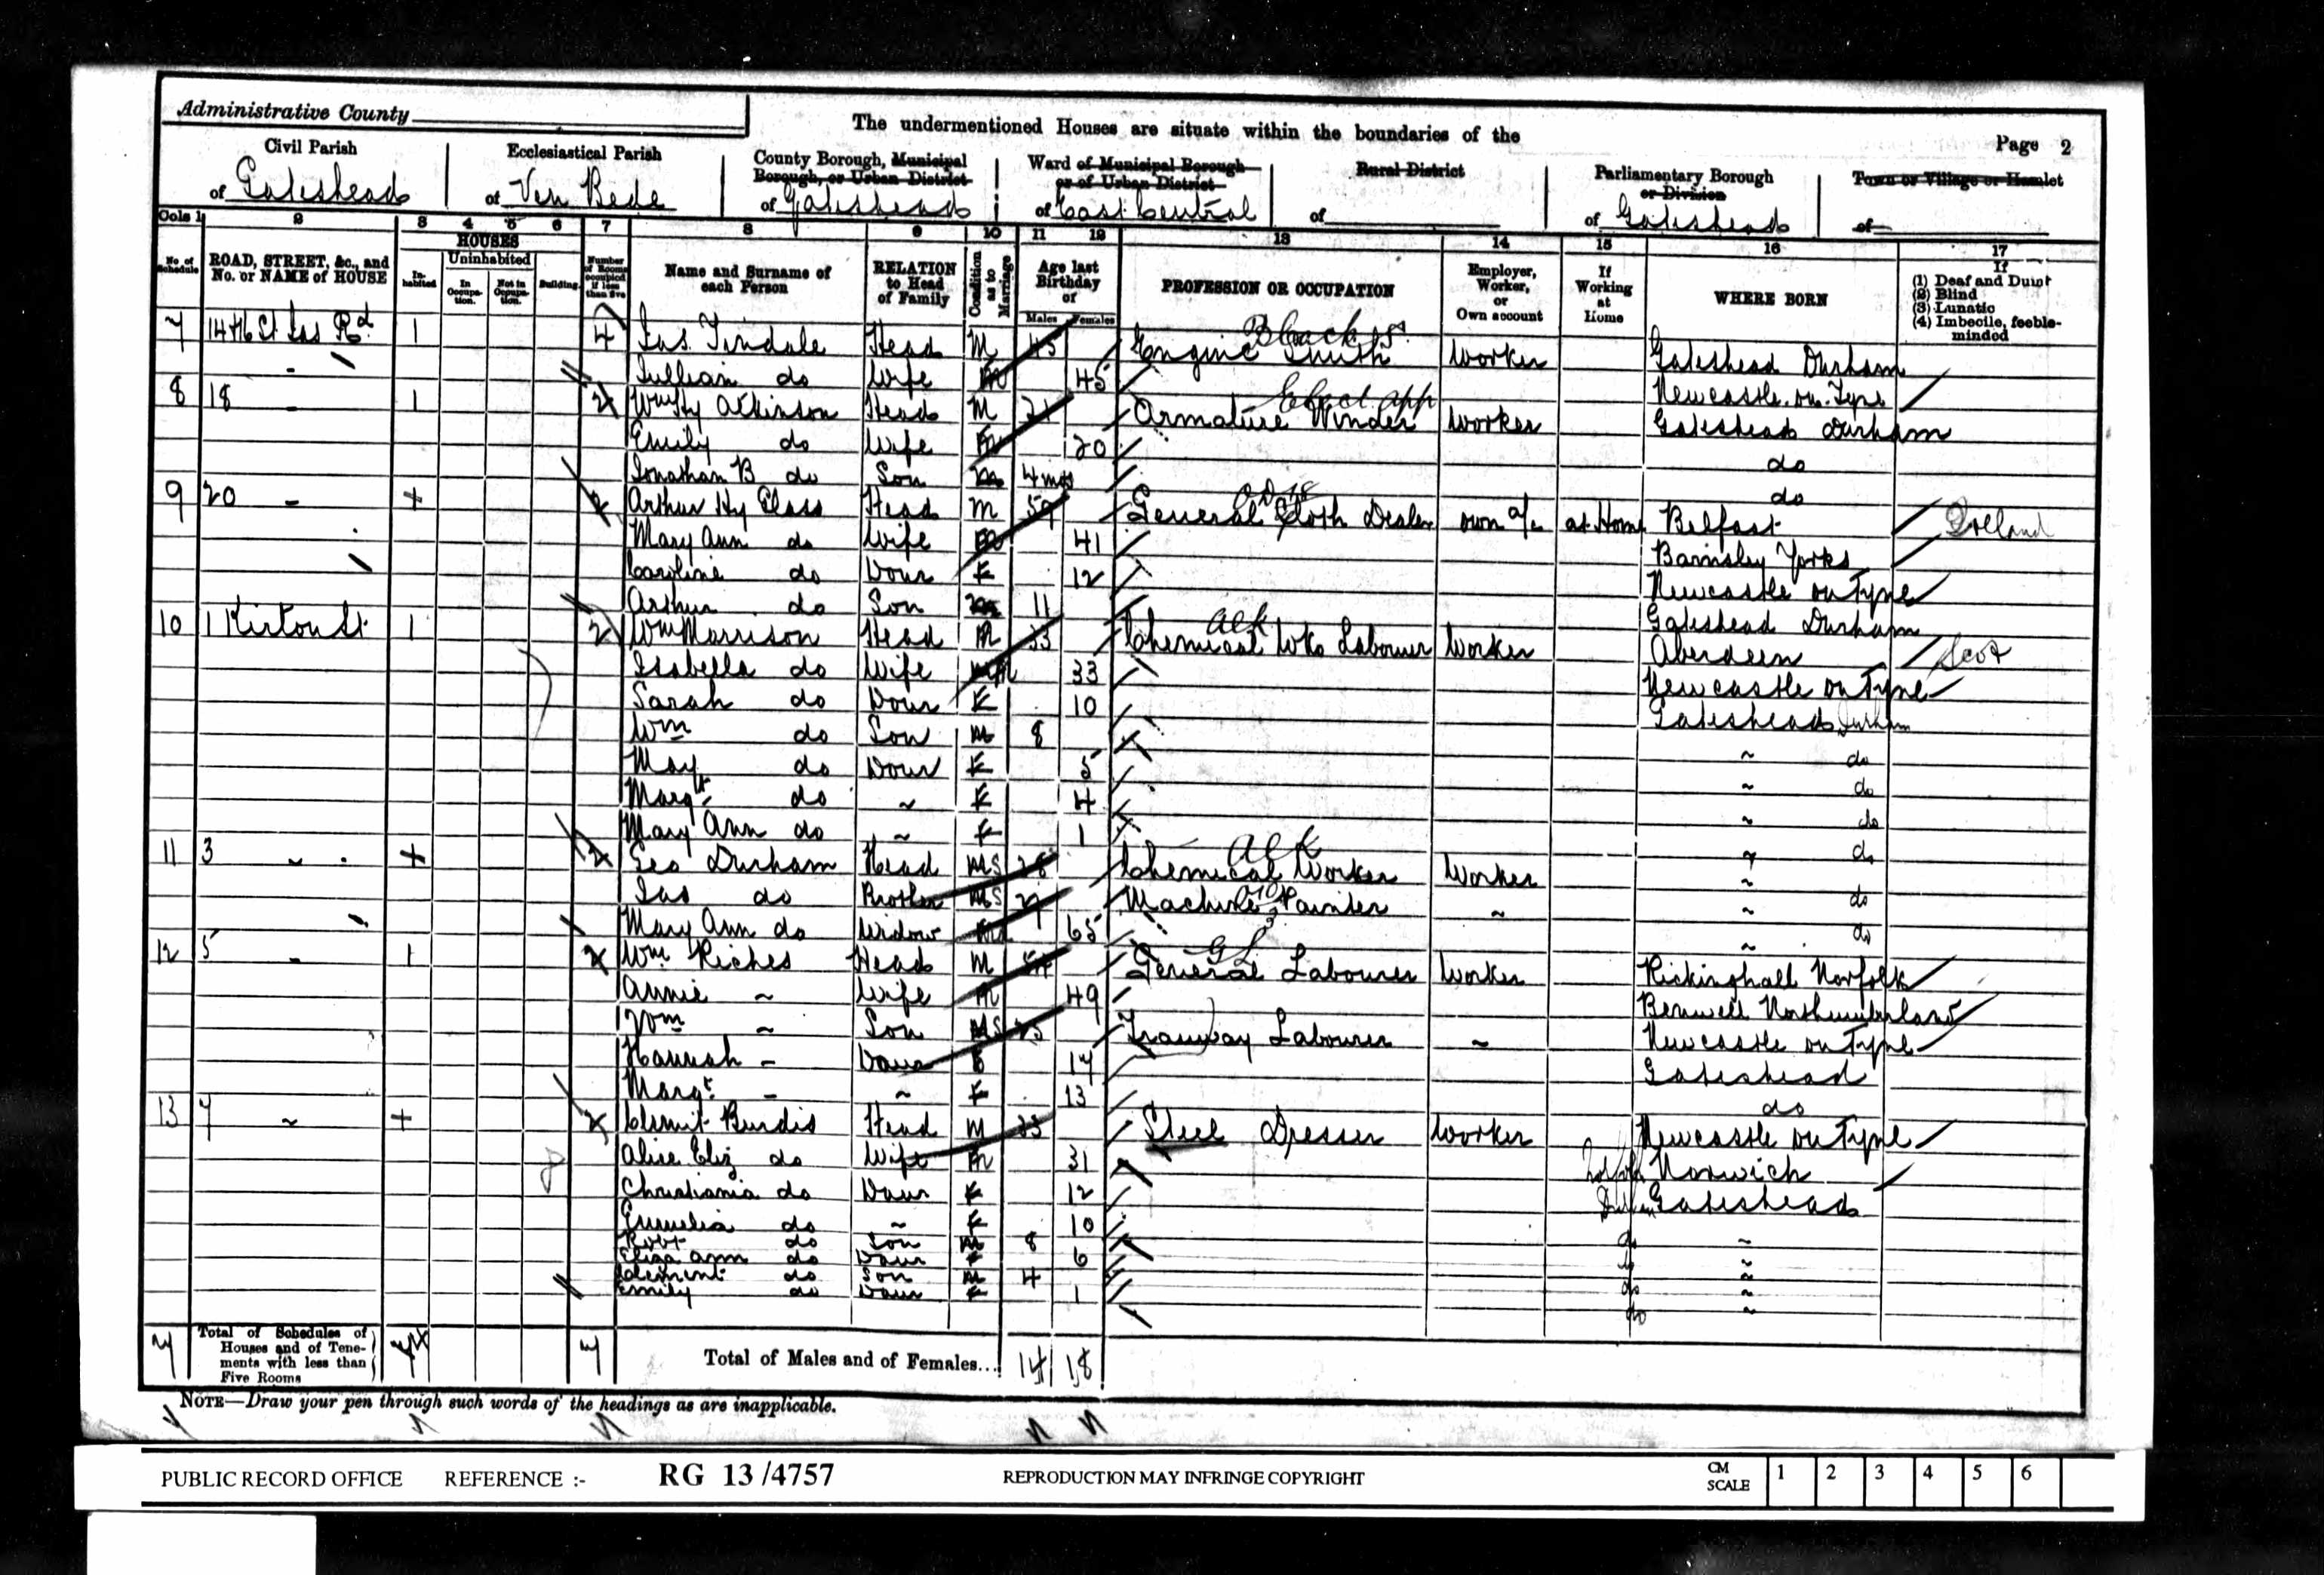 Administrative County
The undermentioned Houses are situate within the boundaries of the
Page 2
Civil Parish of Gateshead
Ecclesiastical Parish of Ven Bede
County Borough, Municipal Borough, or Urban District of Gateshead
Ward of Municipal Borough or of Urban District of East Central
Rural District of
Parliamentary Borough or Division of Gateshead
Town or Village or Hamlet of
Cols 1 2 3 4 5 6 7 8 9 10 11 12 13 14 15 16 17
No. of Schedule
ROAD, STREET, &c., and No. or NAME of HOUSE
HOUSES
Inhabited
Uninhabited
In Occupation.
Not in Occupation.
Building.
Number of Rooms occupied if less than five
Name and Surname of each Person
RELATION to Head of Family
Condition as to Marriage
Age last Birthday of
Males Females
PROFESSION OR OCCUPATION
Employer, Worker, or Own account
If Working at Home
WHERE BORN
If
(1) Deaf and Dumb
(2) Blind
(3) Lunatic
(4) Imbecile, feeble-minded
7 14 & 16 St Jas Rd 1 4 Jas. Tindale Head M 45 Engine Smith Blacks Worker Gateshead Durham
do Wife M 45 Newcastle on Tyne
8 18 1 2 Wm Hy Atkinson Head M 21 Armature Winder Elect app Worker Gateshead Durham
Emily do Wife M 20 do
Jonathan B do Son 4 mos do
9 20 2 Arthur Hy Glass Head M 59 General Cloth Dealer own a/c at Home Belfast Ireland
Mary Ann do Wife M 41 Barnsley Yorks
Caroline do Daur 12 Newcastle on Tyne
Arthur do Son 11 Gateshead Durham
10 1 Kirton St 1 2 Wm Morrison Head M 33 Chemical Wks Labourer Worker Aberdeen Scot
Isabella do Wife M 33 Newcastle on Tyne
Sarah do Daur 10 Gateshead Durham
Wm do Son 8 ~ do
May do Daur 5 ~ do
Margt do ~ 4 ~ do
Mary Ann do ~ 1 ~ do
11 3 2 Geo Durham Head S 28 Chemical Worker Worker ~ do
Jas do Brother S 21 Machine Painter ~ ~ do
Mary Ann do Widow 65 ~
12 5 1 2 Wm Riches Head M 54 General Labourer GL Worker Rickinghall Norfolk
Annie ~ Wife M 49 Benwell Northumberland
Wm ~ Son S 25 Tramway Labourer ~ Newcastle on Tyne
Hannah - Daur S 17 Gateshead
Margt - ~ 13 do
13 7 ~ 2 Clemit Burdis Head M 33 Steel Dresser Worker Newcastle on Tyne
Alice Eliz do Wife M 31 Norfolk Norwich
Christiania do Daur 12 Gateshead
do ~ 10 do ~
Robt do Son 8 ~
Eliza Ann do Daur 6 ~
Clement do Son 4 do ~
Emily do Daur 1 do ~
7 Total of Schedules of Houses and of Tenements with less than Five Rooms 7 Total of Males and of Females... 14 18
NOTE—Draw your pen through such words of the headings as are inapplicable.
PUBLIC RECORD OFFICE REFERENCE :- RG 13/4757 REPRODUCTION MAY INFRINGE COPYRIGHT CM SCALE 1 2 3 4 5 6